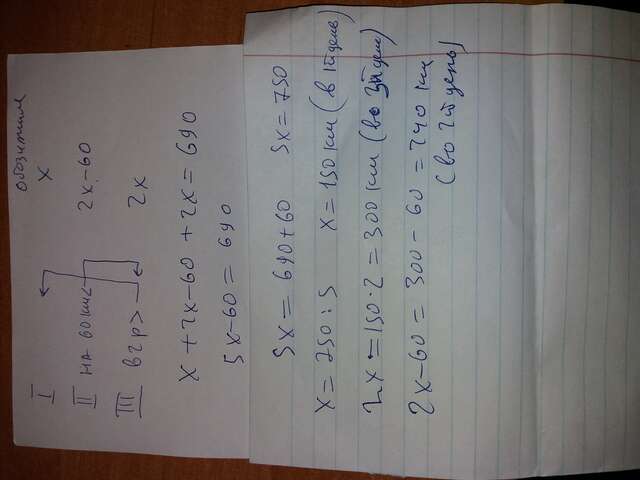 обозначим
I x
II на 60 км < 2x-60
III в 2 р > 2x
x + 2x-60 + 2x = 690
5x-60 = 690
5x = 690+60 5x = 750
x = 750 : 5 x = 150 км (в 1й день)
2x = 150·2 = 300 км (во 3й день)
2x-60 = 300-60 = 240 км
(во 2й день)